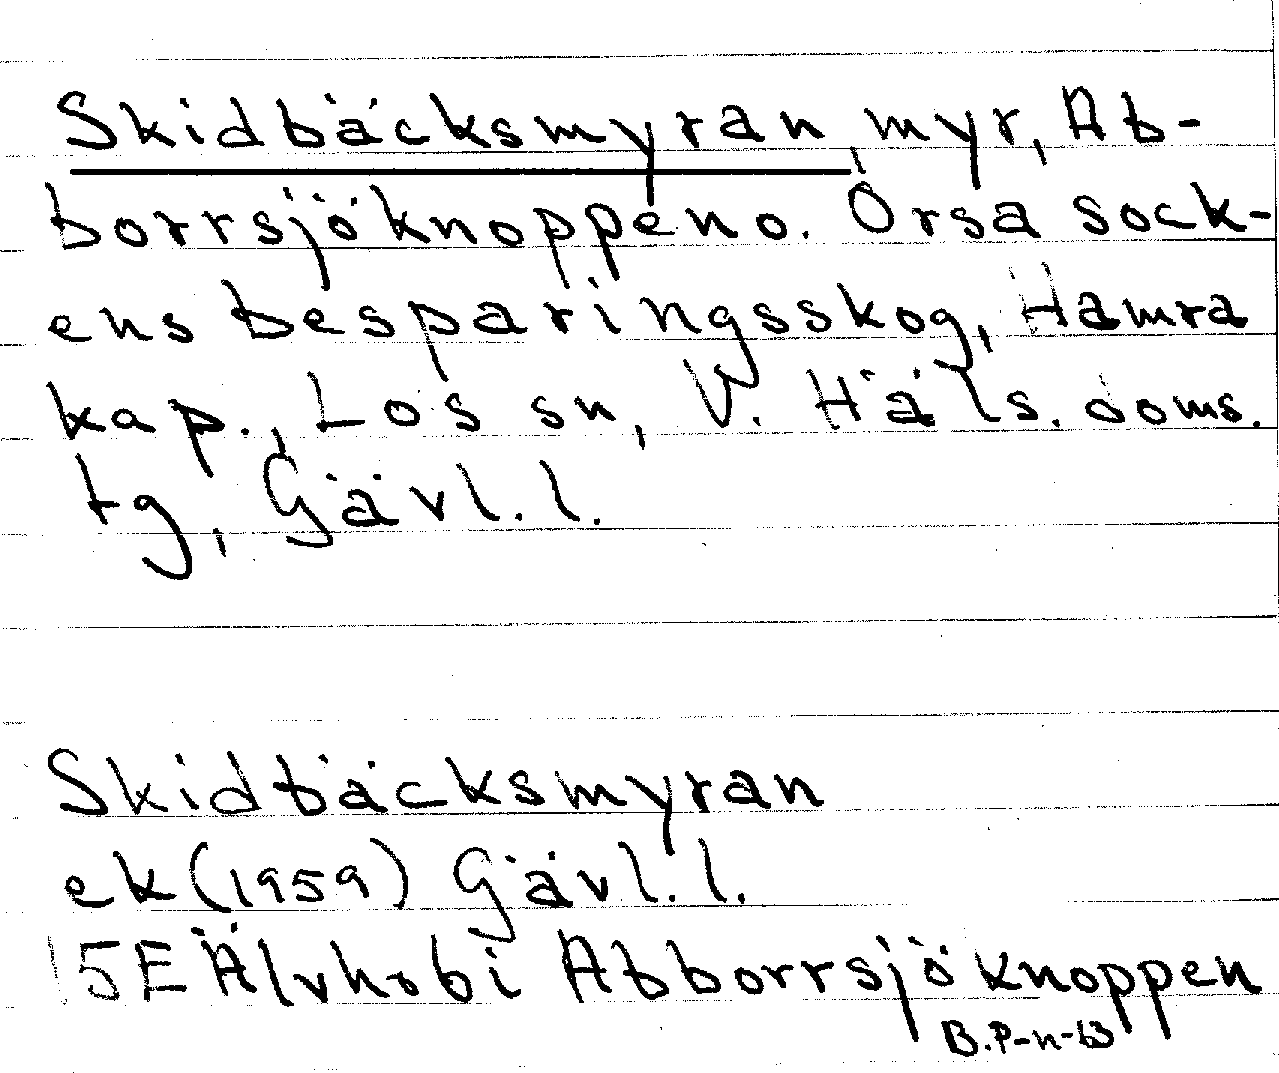 Skidbäcksmyran, myr, Ab-
borrsjöknoppeno. Orsa sock-
ens besparingsskog, Hamra
kap., Los sn, V. Häls. doms.
tg, Gävl. l.
Skidbäcksmyran
ek (1959) Gävl. l.
15E Älvhobi Abborrsjöknoppen
B.P-n-63